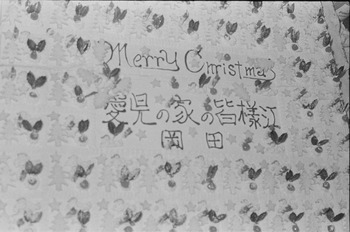 Merry Christmas
愛児の家の皆様江
岡田